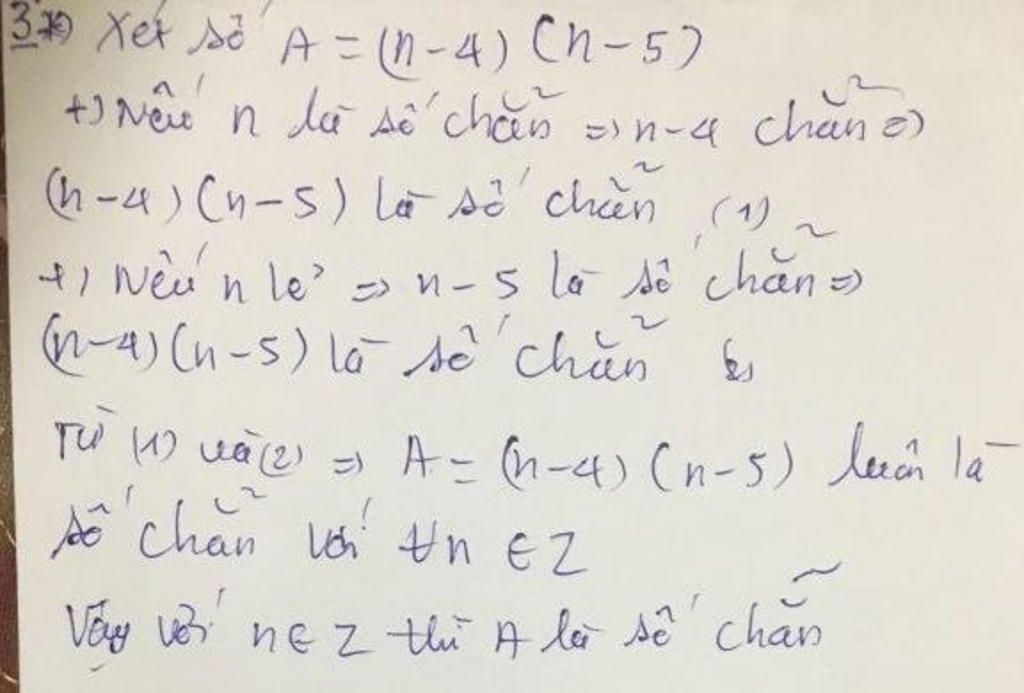 3*) Xét số A = (n-4) (n-5)
+) Nếu n là số chẵn => n-4 chẵn =>
(n-4)(n-5) là số chẵn (1)
+) Nếu n lẻ => n-5 là số chẵn =>
(n-4)(n-5) là số chẵn (2)
Từ (1) và (2) => A = (n-4) (n-5) luôn là
số chẵn với ∀n ∈ Z
Vậy với n ∈ Z thì A là số chẵn